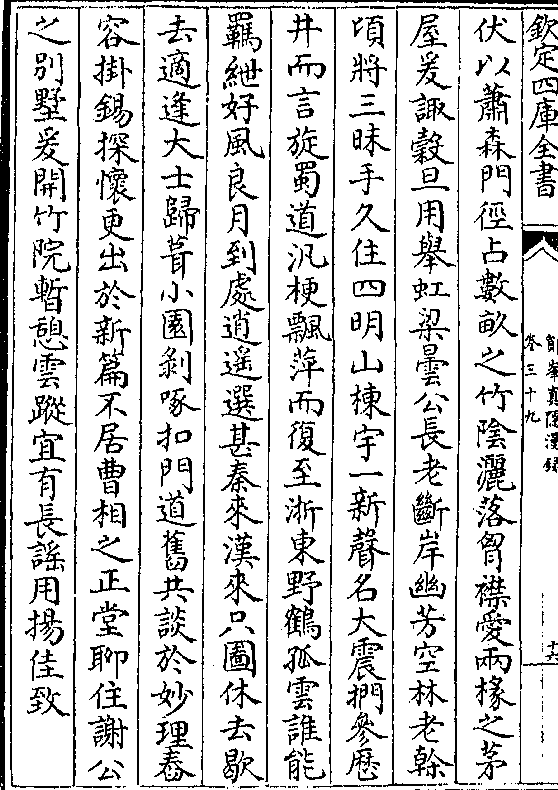 欽定四庫全書
鄮峯真隱漫録
卷三十九
十六
伏以蕭森門徑占數畝之竹陰灑落胷襟愛兩椽之茅
屋爰諏穀旦用舉虹梁曇公長老斷岸幽芳空林老榦
頃將三昧手久住四明山棟宇一新聲名大震捫參歴
井而言旋蜀道汎梗飄萍而復至浙東野鶴孤雲誰能
羈紲好風良月到處逍遥選甚秦來漢來只圖休去歇
去適逢大士歸葺小園剝啄扣門道舊共談於妙理舂
容掛錫探懷更出於新篇不居曹相之正堂聊住謝公
之别墅爰開竹院暫憩雲蹤宜有長謡用揚佳致